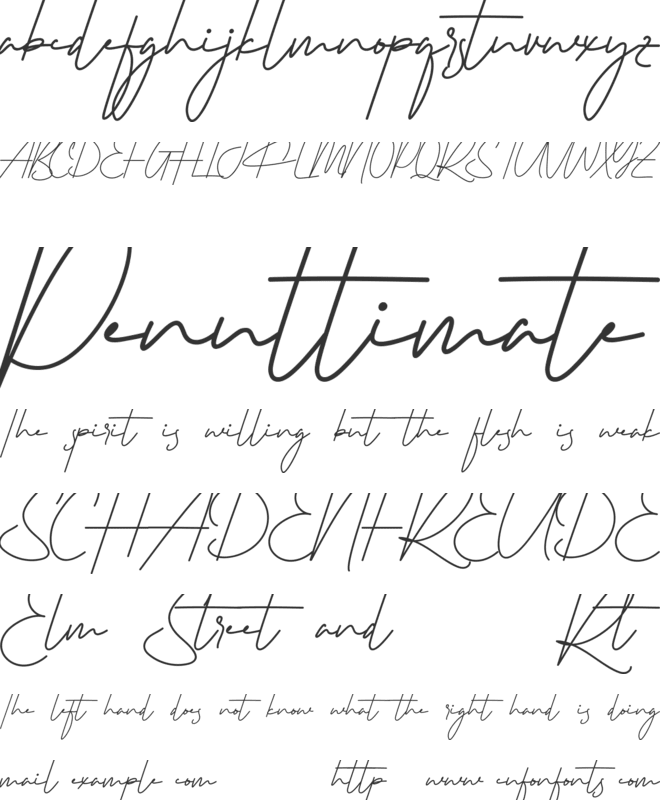 abcdefghijklmnopqrstuvwxyz
ABCDEFGHIJKLMNOPQRSTUVWXYZ
Penultimate
The spirit is willing but the flesh is weak
SCHADENFREUDE
Elm Street and Rt
The left hand does not know what the right hand is doing
mail example com http www cnfonfonts com